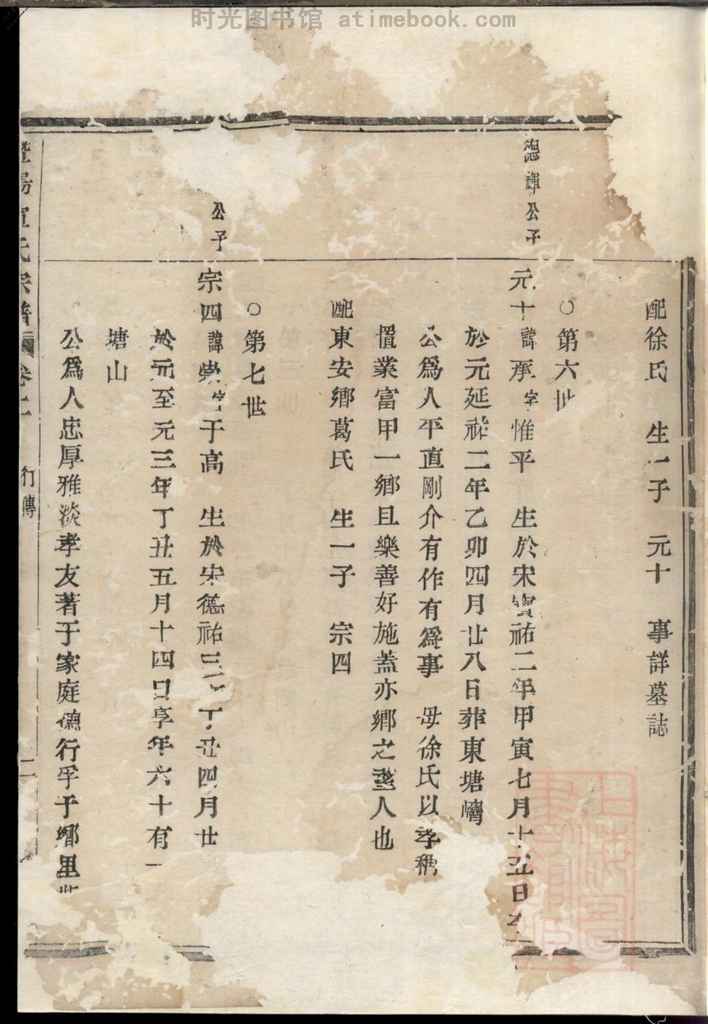 时光图书馆 atimebook.com
配徐氏 生一子 元十 事詳墓誌
○第六世
公子
元十諱承字惟平 生於宋寶祐二年甲寅七月十五日
於元延祐二年乙卯四月廿八日葬東塘
公爲人平直剛介有作有爲事母徐氏以孝稱
置業富甲一鄉且樂善好施蓋亦鄉之 人也
配東安鄉葛氏 生一子 宗四
○第七世
公子
宗四諱崇字于高 生於宋德祐 丁丑四月廿
於元至元三年丁丑五月十四日享年六十有一
塘山
公爲人忠厚雅淡孝友著于家庭德行孚于鄉里
氏宗譜 卷二 行傳 二